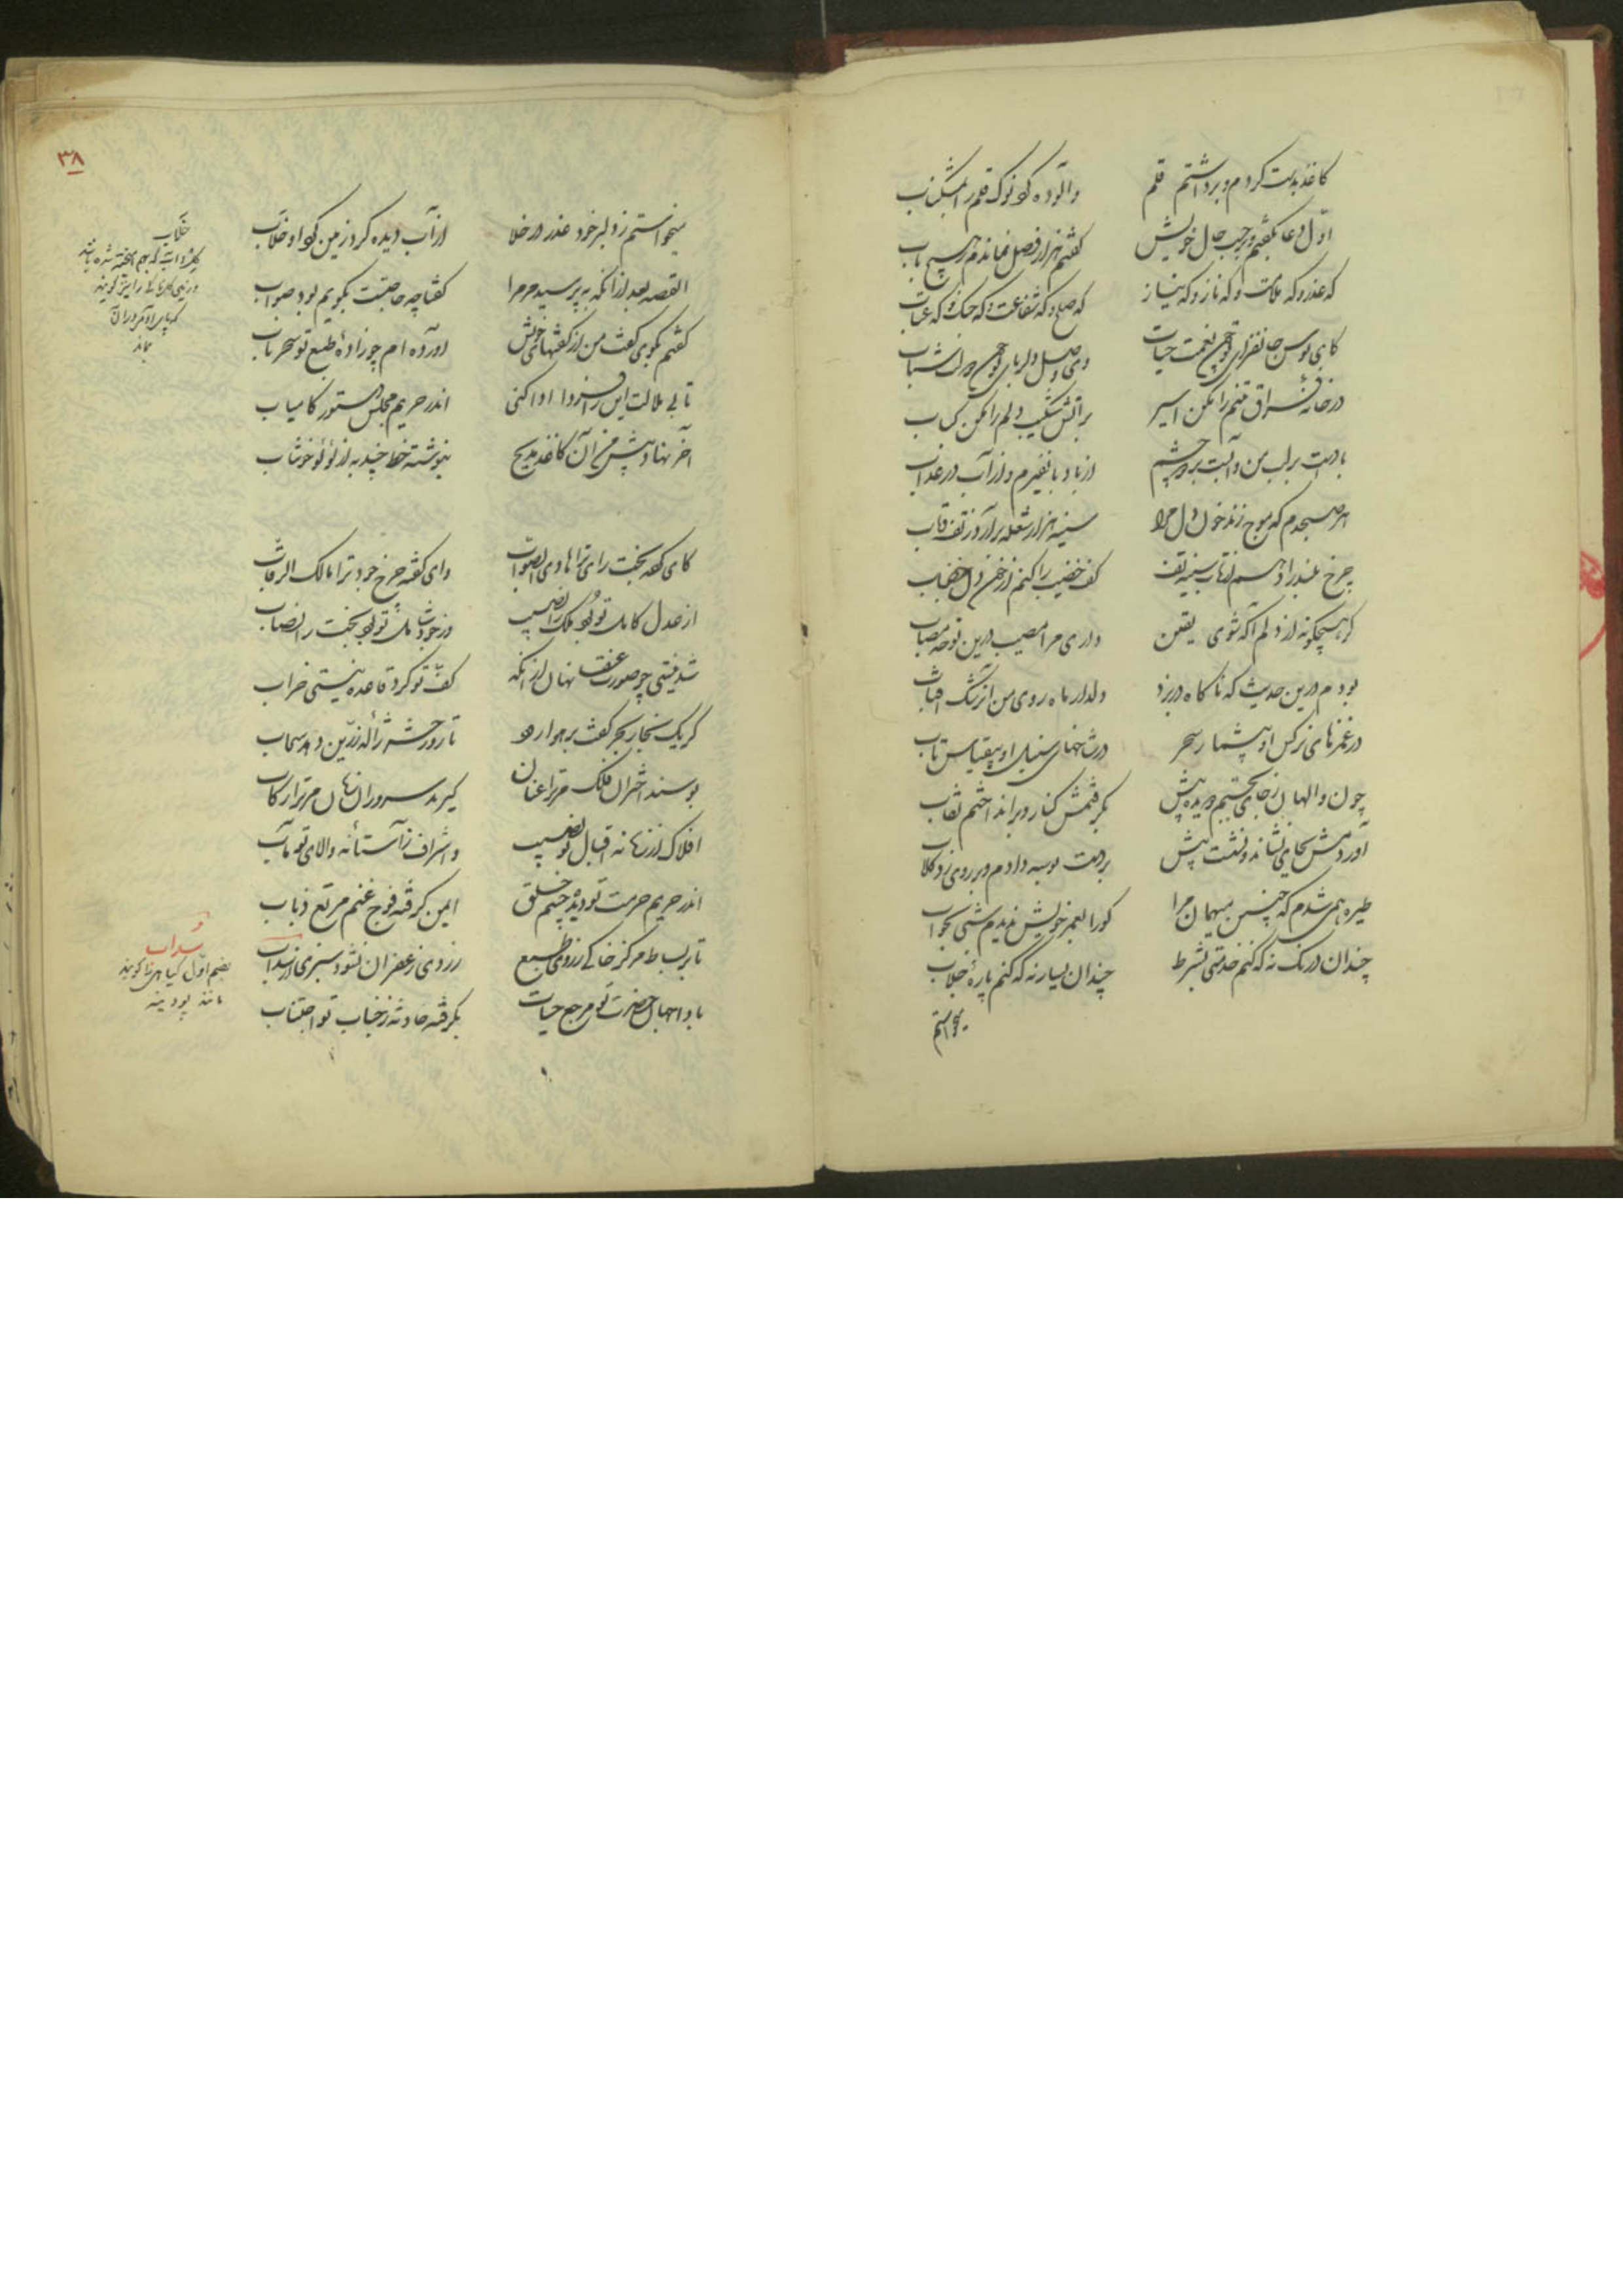 کاغذ بدست کردم و برداشتم قلم
والوده کرد نوک قلم را بمشک ناب
اول دعا بگفتم و بر حسب حال خویش
گفتم هزار فصل نماندم هیچ باب
که عذر و که ملامت و که ناز و که نیاز
که صلح و که شفاعت و که جنگ و که عتاب
کای بوس جانفزای تو همچون نعمت حیات
وی وصل دلربای تو همچون دولت شباب
در خانه فراق تنم را مکن اسیر
بر آتش شکیب دلم را مکن کباب
بادست بر لب من و آبست بر دو چشم
از باد با نفیرم و از آب در عذاب
هر صبحدم که موج زند خون دل مرا
سینه هزار شعله برآرد ز تف و تاب
چرخ بلند را دهم از تاب سینه تف
کف خضیب را کنم از خون دل خضاب
کر هیچگونه از دلم آگه شوی یقین
داری مرا مصیب درین نوحه مصاب
بودم درین حدیث که ناگاه در بزد
دلدار ماه روی من آن رشک آفتاب
در غمزهای نرکس او بیشمار سحر
در شاخهای سنبل او بیقیاس تاب
چون والهان ز جای بجستم دویده پیش
بگرفتمش کنار و برانداختم نقاب
آوردمش بجای نشاند و نشست پیش
بر دست بوسه دادم و بر روی زد گلاب
طیره همی شدم که چنین میهمان مرا
کورا بعمر خویش ندیدم شبی بخواب
چندان درنک نه که کنم خدمتی بشرط
چندان یسار نه که کنم پاره جلاب
میخواستم
۳۸
میخواستم ز دلبر خود عذر در خلا
از آب دیده کرد زمین گرد او خلاب
القصه بعد از آنکه بپرسید مر مرا
گفتا چه حاجتست بگویم بود صواب
گفتم بگوی گفت من از گفتهای خویش
آورده ام چو زاده طبع تو سحر ناب
تا بی ملالت این را فردا ادا کنی
اندر حریم مجلس دستور کامیاب
آخر نهاد پیش من آن کاغذ مدیح
بنوشته خط چند به از لؤلؤ خوشاب
کای کرده بخت رای ترا هادی الصواب
وای گفته چرخ جود ترا مالک الرقاب
از عدل کامل تو بود ملک را نصیب
وز جود شامل تو بود بخت را نصاب
شد نیستی چو صورت عنقا نهان از آنکه
کف تو کرد قاعده نیستی خراب
گر یک بخار بحر کفت بر هوا رود
تا روز حشر ژاله زرین دهد سحاب
بوسند اختران فلک مر ترا عنان
گیرند سروران جهان مر ترا رکاب
افلاک از زهانه اقبال تو نصیب
واشراف ز آستانه والای تو مآب
اندر حریم حرمت تو دیده چشم خلق
ایمن گرفته فوج غنم مرتع ذیاب
تا بر بساط مرکز خاکی ز روی طبع
زردی ز زعفران نشود سبزی از سداب
بادا جهان حضرت تو مرجع حیات
بگرفته حادثه ز جناب تو اجتناب
خلاب
بماند
سداب
بضم اول گیاهی باشد
مانند پودینه